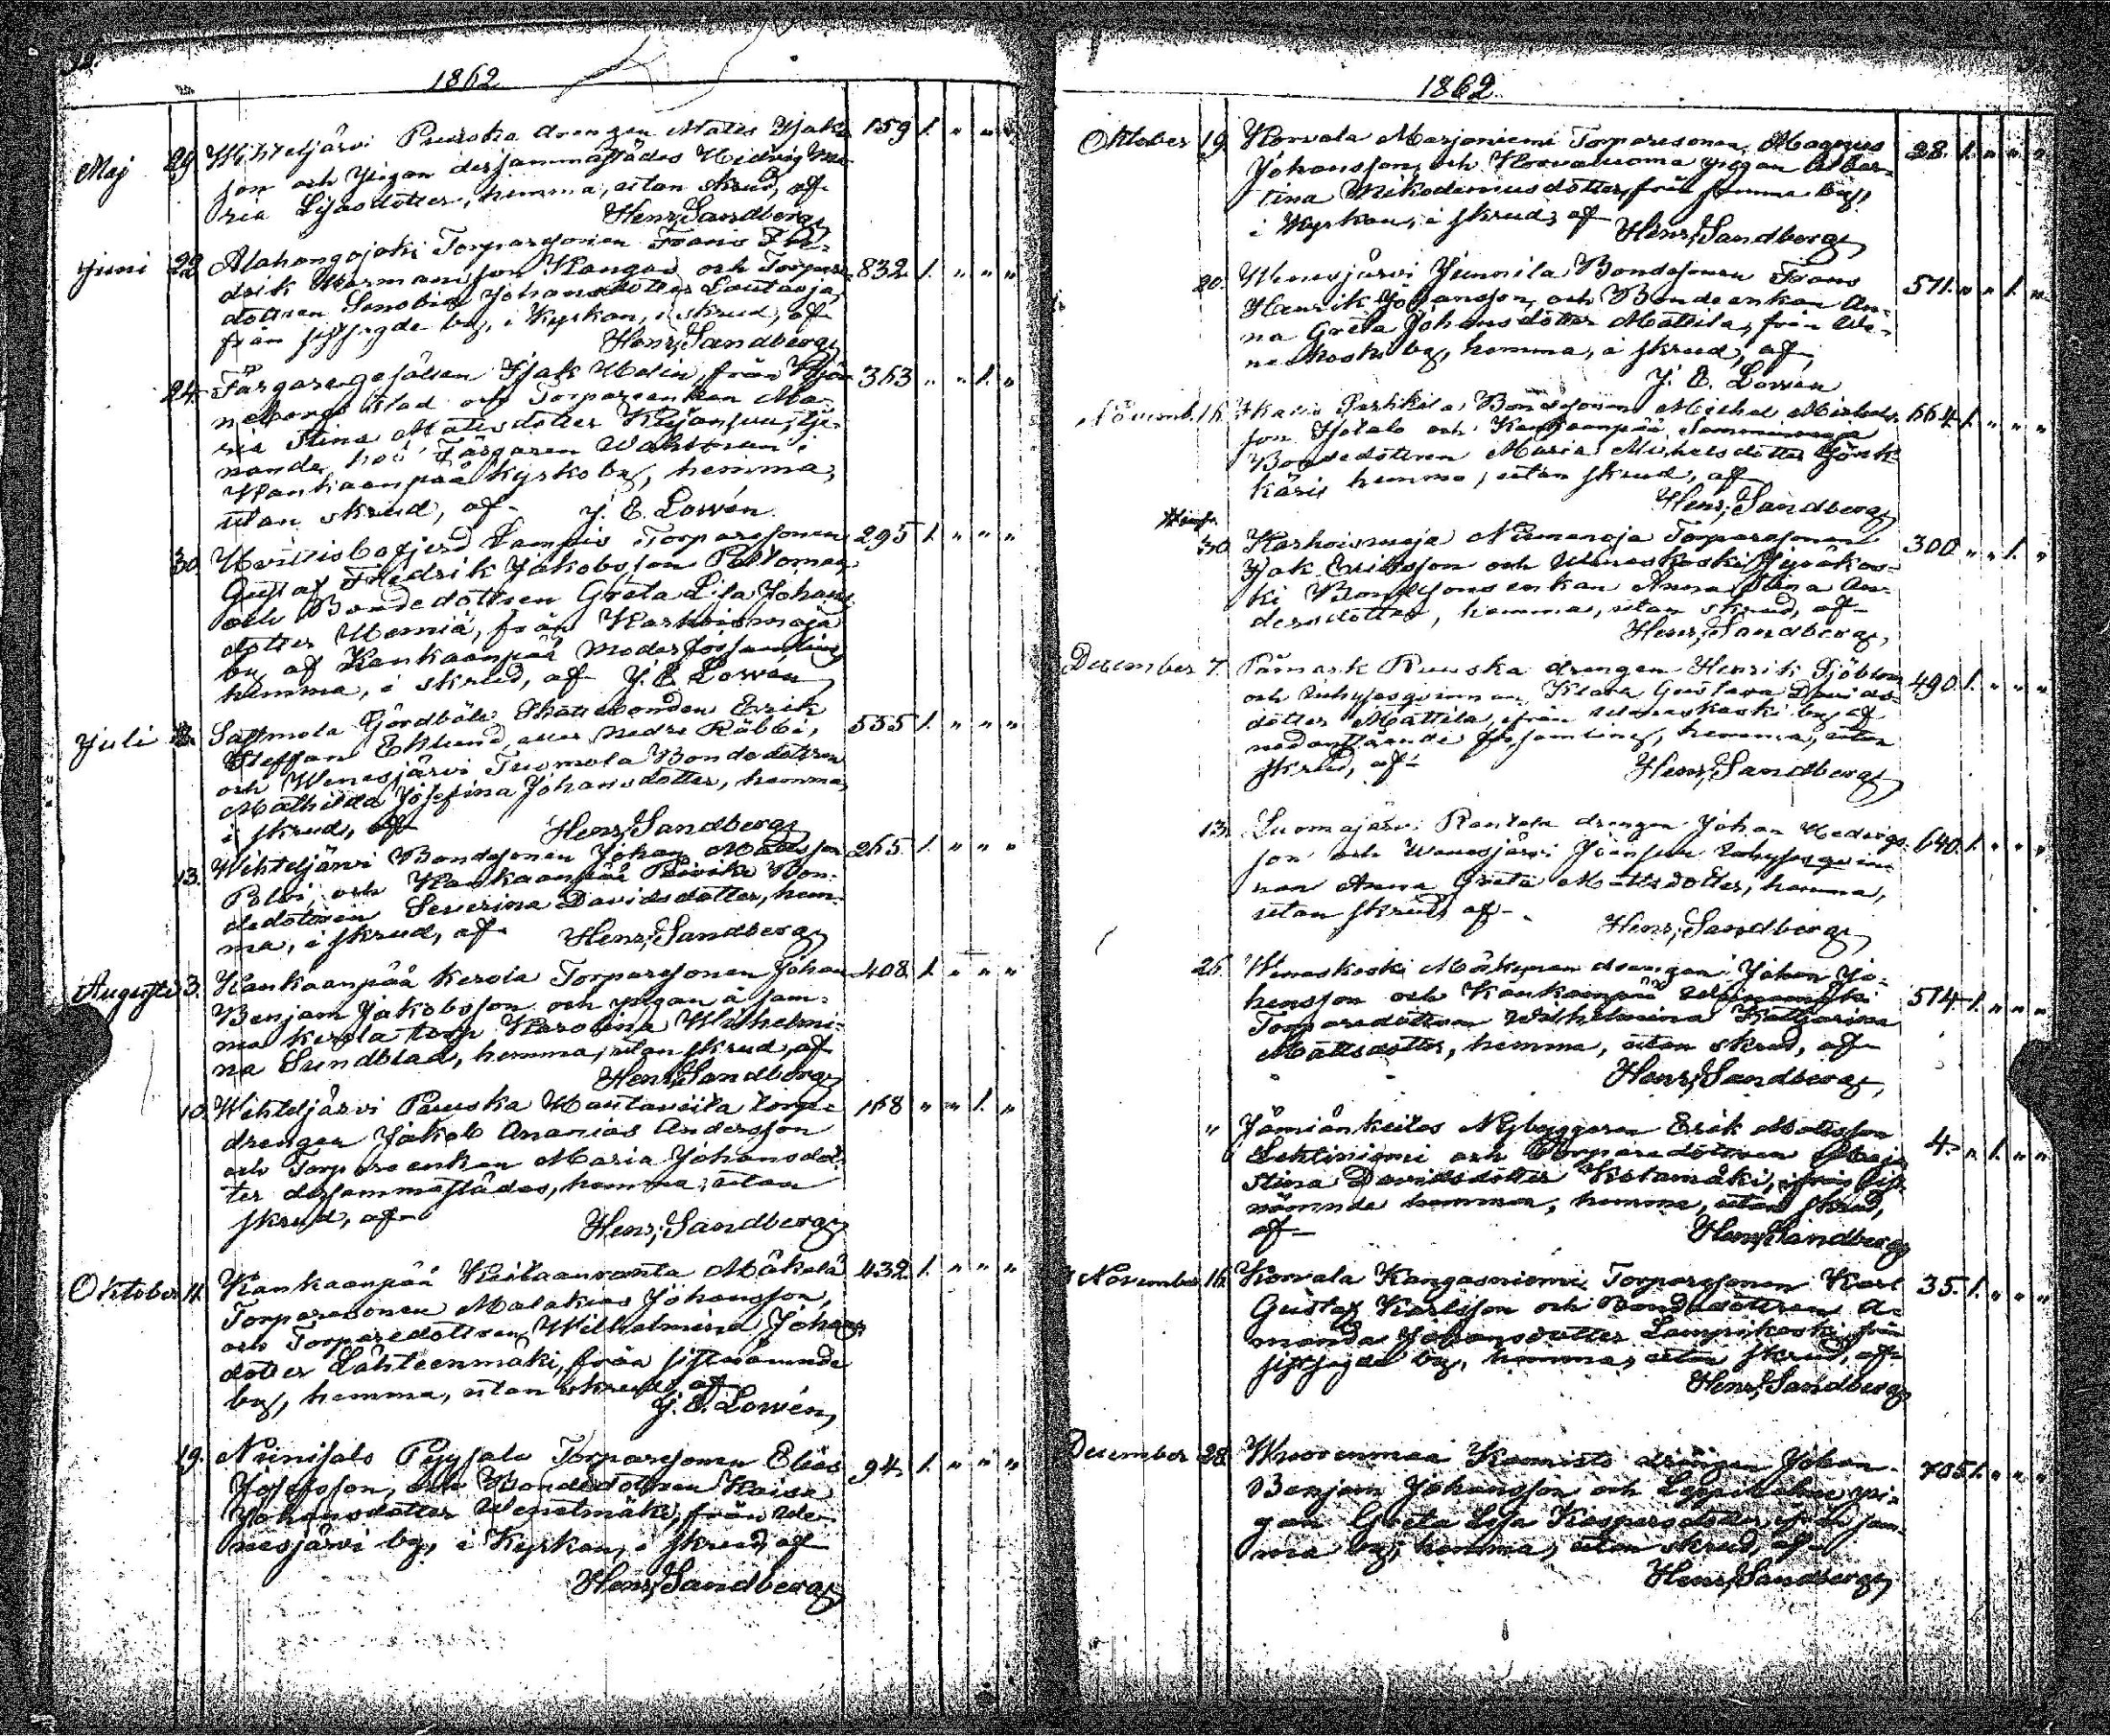 1862
Maj 29 Wihteljärvi Puuska drengen Matts Isaks 159 1. " " "
son och pigan dersammastädes Hedvig Ma-
ria Lijasdotter, hemma, utan skrud, af
Henr. Sandberg
Juni 22 Alahongojoki Torparesonen Frans Fre- 832 1. " " "
drik Hermansson Kangas och Torpare-
dottren Senobia Johansdotter Lautaoja,
från sistsagde by, i Kyrkan, i skrud, af
Henr. Sandberg
24. Färgaregesällen Isak Malin, från Björ- 363 " " 1. "
neborgs stad och Torpareenkan Ma-
ria Stina Mattsdotter tje-
nande hos Färgaren
Kankaanpää Kyrkoby, hemma,
utan skrud, af J. E. Lowén.
30. Torparesonen 295 1. " " "
Gustaf Fredrik Jakobsson Peltomaa
och Bondedottren Greta Lisa Johans-
dotter från Karhoismaja
by af Kankaanpää Moderförsamling
hemma, i skrud, af J. E. Lowén
Juli Sastmola Gårdböle Skattebonden Erik 535 1. " " "
Steffan Eklund eller Nedre Räbbi,
och Wenesjärvi Tuomola Bondedottren
Mathilda Josefina Johansdotter, hemma,
i skrud, af Henr. Sandberg
13. Wihteljärvi Bondesonen Johan Mattsson 265 1. " " "
och Kankaanpää Päivike Bon-
dedottren Severina Davidsdotter, hem-
ma, i skrud, af Henr. Sandberg
Augusti 3. Kankaanpää Kerola Torparesonen Johan 408 1. " " "
Benjam Jakobsson och pigan å sam-
ma Kerola torp Karolina Wilhelmi-
na Sundblad, hemma, utan skrud, af
Henr. Sandberg
10. Wihteljärvi Puuska torp- 168 " " 1. "
drengen Jakob Ananias Andersson
och Torpareenkan Maria Johansdot-
ter dersammastädes, hemma, utan
skrud, af Henr. Sandberg
Oktober Kankaanpää Keitaanranta Mäkelä 432 1. " " "
Torparesonen Malakias Johansson,
och Torparedottren Wilhelmina Johans-
dotter Lähteenmäki, från sistnämnde
by, hemma, utan skrud, af
J. E. Lowén
19. Niinisalo Pyysalo Torparesonen Elias 94 1. " " "
Josefsson, och Bondedottren Kaisa
Johansdotter från We-
nesjärvi by, i Kyrkan, i skrud, af
Henr. Sandberg
1862.
Oktober 19 Korvala Marjoniemi Torparesonen Magnus 28. 1. " " "
Johansson, och Korvaluoma pigan Alber-
tina Nikodemusdotter, från samma by,
i Kyrkan, i skrud, af Henr. Sandberg
20. Wenesjärvi Junnila Bondesonen Frans 571. " " 1. "
Henrik Johansson, och Bondeenkan An-
na Greta Johansdotter Mattila, från We-
neskoski by, hemma, i skrud, af
J. E. Lowén
Novemb. 16 Bondesonen Michel Michels- 664 1. " " "
son och Kankaanpää
Bondedottren Maria Michelsdotter
hemma, utan skrud, af
Henr. Sandberg
30. Karhoismaja Niemenoja Torparesonen 300 " " 1. "
Isak Eriksson och Weneskoski
Bondesonsenkan Anna Stina An-
dersdotter, hemma, utan skrud, af
Henr. Sandberg
December 7. Påmark Ruuska drengen Henrik Sjöblom 490 1. " " "
och Inhysesqvinnan Klara Gustava Davids-
dotter Mattila, från Weneskoski by af
nedanstående församling, hemma, utan
skrud, af Henr. Sandberg
13. Luomajärvi Rantala drengen Johan Hedvigs- 640. 1. " " "
son och Wenesjärvi Inhysesqvin-
nan Anna Greta Mattsdotter, hemma,
utan skrud, af Henr. Sandberg
26. Weneskoski drengen Johan Jo- 574 1. " " "
hansson och Kankaanpää
Torparedottren Wilhelmina Katharina
Mattsdotter, hemma, utan skrud, af
Henr. Sandberg
" Jämiänkeitas Nybyggaren Erik Mattsson 4. " 1. " "
Lehtiniemi och Torparedottren Maja
Stina Davidsdotter Kotamäki, från sist-
nämnde hemman, hemma, utan skrud,
af Henr. Sandberg
November 16 Korvala Kangasniemi Torparesonen Karl 35. 1. " " "
Gustaf Karlsson och Bondedottren A-
manda Johansdotter Lampinkoski, från
sistsagde by, hemma, utan skrud, af
Henr. Sandberg
December 28 drängen Johan 705 1. " " "
Benjam Johansson och pi-
gan Greta Lisa Kaspersdotter, från sam-
ma by, hemma, utan skrud, af
Henr. Sandberg